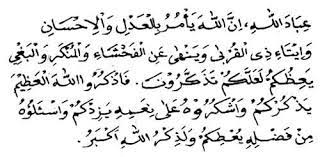 عِبَادَ اللهِ، اِنَّ اللهَ يَأْمُرُ بِالْعَدْلِ وَاْلاِحْسَانِ
وَاِيتَاءِ ذِى الْقُرْبٰى وَيَنْهٰى عَنِ الْفَحْشَاءِ وَالْمُنْكَرِ وَالْبَغْيِ
يَعِظُكُمْ لَعَلَّكُمْ تَذَكَّرُوْنَ. فَاذْكُرُوا اللهَ الْعَظِيْمَ
يَذْكُرْكُمْ وَاشْكُرُوْهُ عَلٰى نِعَمِهِ يَزِدْكُمْ وَاسْئَلُوْهُ
مِنْ فَضْلِهِ يُعْطِكُمْ وَلَذِكْرُ اللهِ اَكْبَرُ.